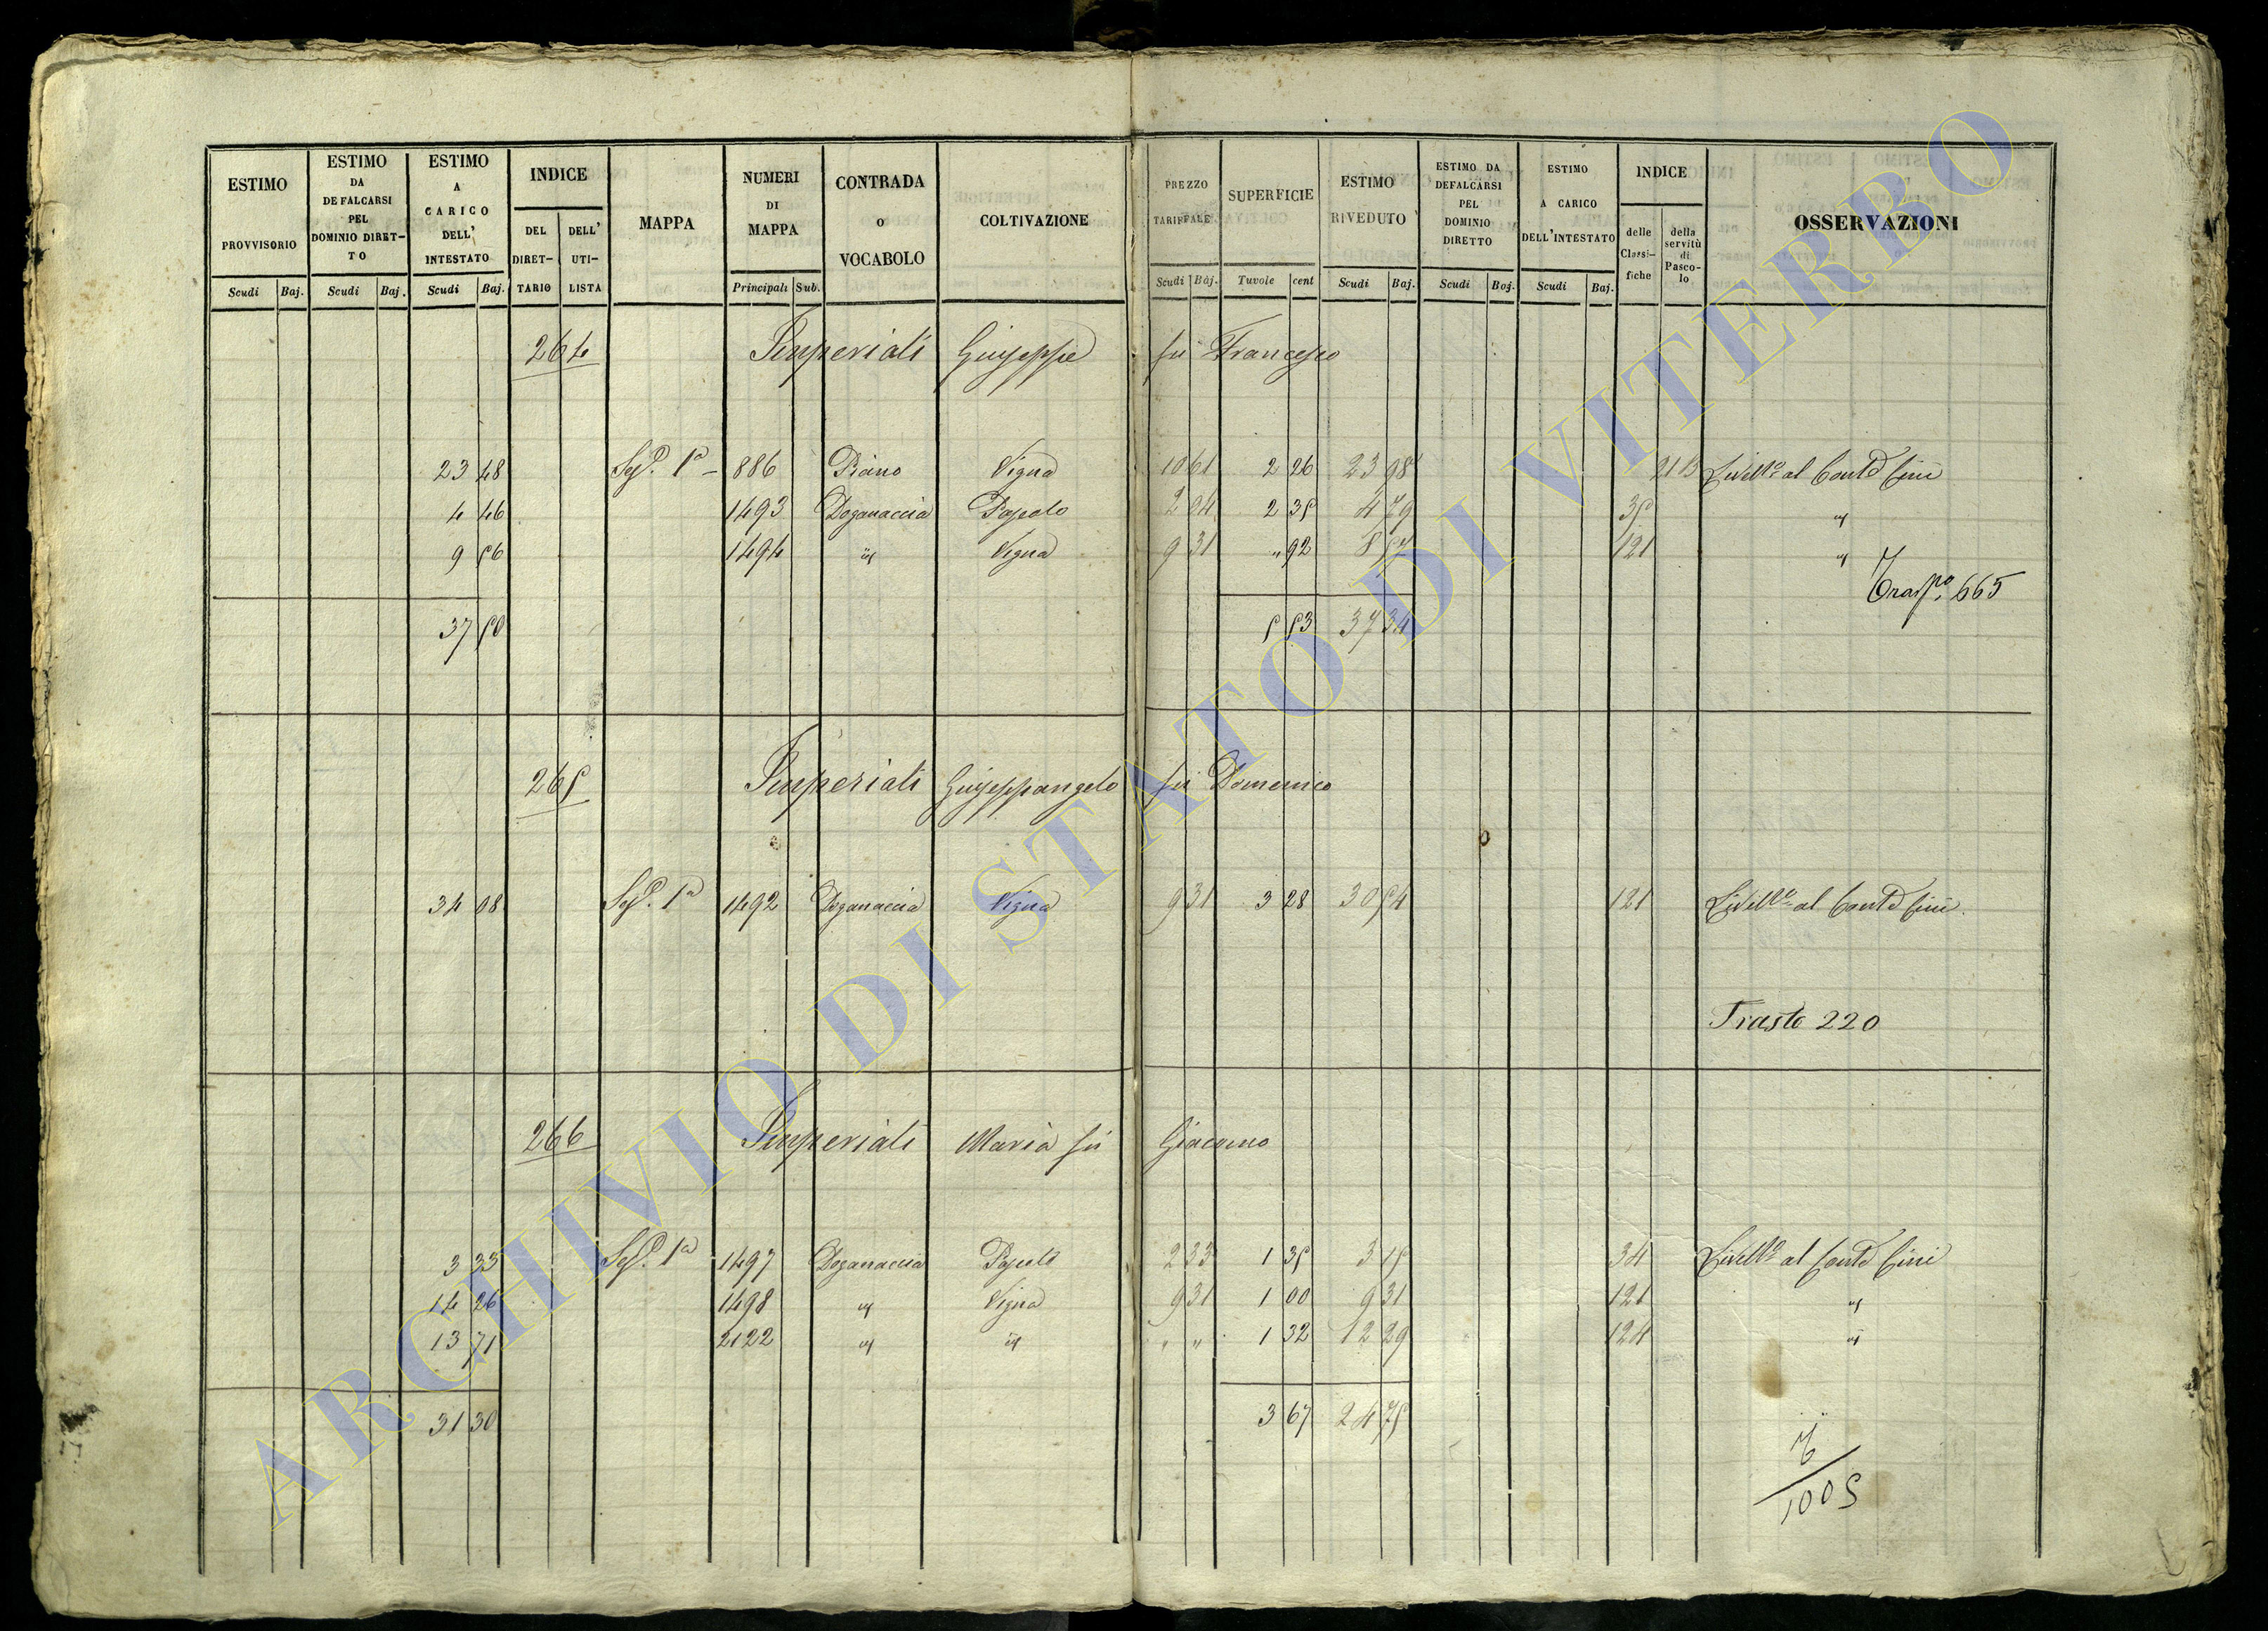 ESTIMO PROVVISORIO Scudi Baj.
ESTIMO DA DEFALCARSI PEL DOMINIO DIRET- TO Scudi Baj.
ESTIMO A CARICO DELL' INTESTATO Scudi Baj.
INDICE DEL DIRET- TARIO DELL' UTI- LISTA
MAPPA
NUMERI DI MAPPA Principali Sub.
CONTRADA o VOCABOLO
COLTIVAZIONE
PREZZO TARIFFALE Scudi Baj.
SUPERFICIE Tavole cent
ESTIMO RIVEDUTO Scudi Baj.
ESTIMO DA DEFALCARSI PEL DOMINIO DIRETTO Scudi Baj.
ESTIMO A CARICO DELL'INTESTATO Scudi Baj.
INDICE delle Classi- fiche della servitù di Pasco- lo
OSSERVAZIONI
264 Imperiali Giuseppe fu Francesco
23 48 Sez. 1a 886 Piano Vigna 10 61 2 26 23 98 21 B Livello al Conte Cini
4 46 1493 Doganaccia Pascolo 2 04 2 35 4 79 35 "
9 56 1494 " Vigna 9 31 " 92 8 57 121 "
Traspo. 665
37 50 5 53 37 34
265 Imperiali Giuseppangelo fu Domenico
34 08 Sez. 1a 1492 Doganaccia Vigna 9 31 3 28 30 54 121 Livello al Conte Cini.
Trasto 220
266 Imperiali Maria fu Giacomo
3 33 Sez. 1a 1497 Doganaccia Pascolo 2 33 1 35 3 15 34 Livello al Conte Cini
14 26 1498 " Vigna 9 31 1 00 9 31 121 "
13 71 2122 " " " " 1 32 12 29 124 "
31 30 3 67 24 75
1005
ARCHIVIO DI STATO DI VITERBO